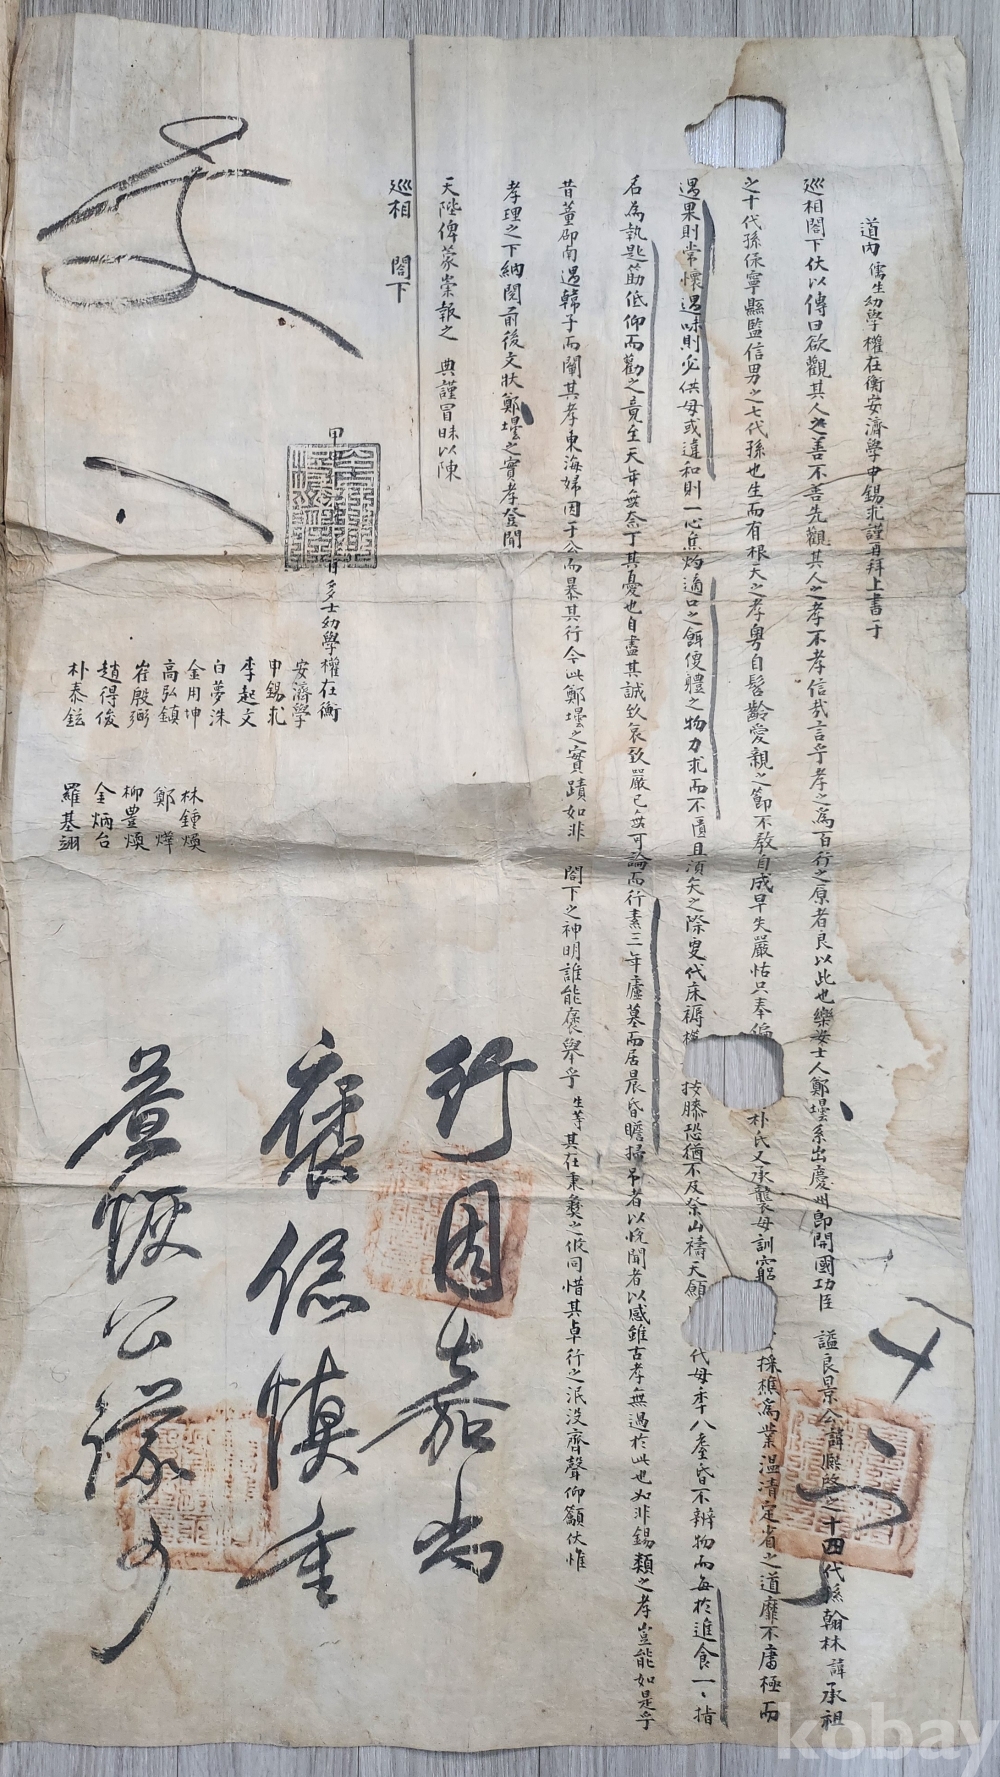 道內 儒生幼學權在衡安濟學申錫求謹再拜上書于
巡相閤下伏以傳曰欲觀其人之善不善先觀其人之孝不孝信哉言乎孝之爲百行之原者良以此也樂安士人鄭墰系出慶州卽開國功臣 諡良景公諱熙啓之十四代孫翰林諱承祖
之十代孫保寧縣監信男之七代孫也生而有根天之孝粤自髫齡愛親之節不敎自成早失嚴怙只奉偏 朴氏又承襲母訓窮 採樵爲業溫凊定省之道靡不庸極而
遇果則常懷遇味則必供母或違和則一心焦灼適口之餌便軆之物力求而不匱且湏矢之際叓代床褥 按膝恐猶不及祭山禱天願 代母季八耋昏不辨物而每於進食一〻指
名爲執匙筯低仰而勸之竟至天年無奈丁其憂也自盡其誠致哀致嚴已無可論而行素三年廬墓而居晨昏瞻掃吊者以悅聞者以感雖古孝無過於此也如非錫類之孝豈能如是乎
昔董卲南遇韓子而闡其孝東海婦因于公而暴其行今此鄭墰之實蹟如非 閤下之神明誰能褒擧乎 生等其在秉彜之攸同惜其卓行之泯沒齊聲仰籲伏惟
孝理之下納閱前後文狀鄭墰之實孝登聞
天陛俾蒙崇報之 典謹冒昧以陳
巡相 閤下
甲 月 多士幼學權在衡
安濟學
申錫求
李起文
白夢洙
金用坤
高弘鎭
崔殷弼
趙得俊
朴泰鉉
林鍾煥
鄭 燁
柳豊煥
金炳台
羅基翊
行因嘉尙
褒 愼重
益 公議事